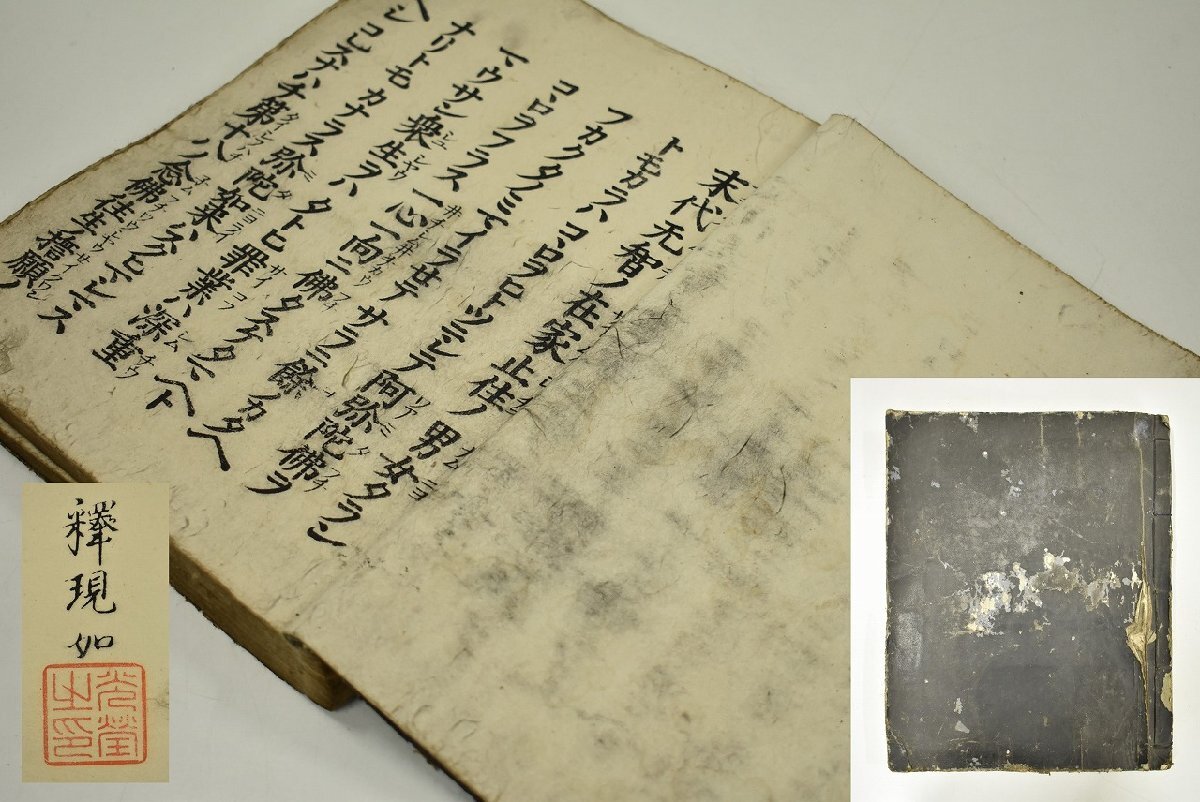 末代无智ノ在家止住ノ男女タラン
トモカラハコヽロヲヒトツニシテ阿弥陀佛ヲ
フカクタノミマイラセテサラニ餘ノカタヘ
コヽロヲフラス一心一向ニ佛タスケタマヘト
マウサン衆生ヲハタトヒ罪業ハ深重
ナリトモカナラス弥陀如来ハスクヒマシマス
ヘシコレスナハチ第十八ノ念佛往生ノ誓願ノ
釋現如
光瑩
之印